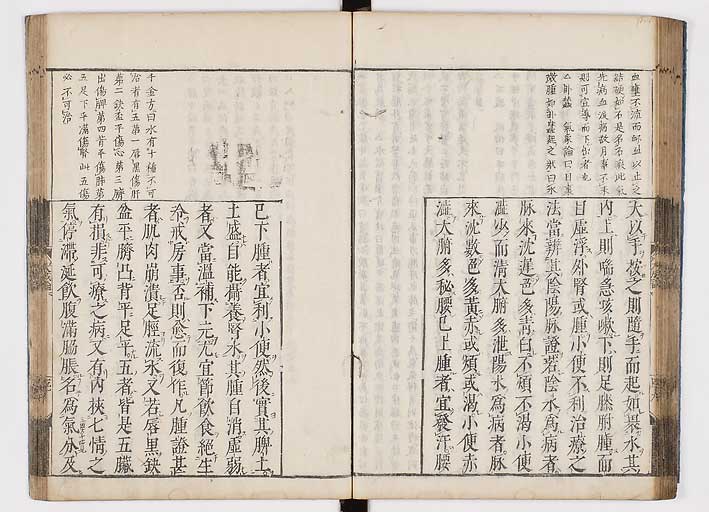 血壅不流而
結硬如
先病血後病故月事不來
則可宣導而下出者也
氣 論曰目裏
微腫如卧蠶起之狀曰水
大以手按之則隨手而起如裹水其
内上則喘急咳嗽下則足膝胕腫而
目虛浮外腎或腫小便不利治療之
法當辨其陰陽脉證若陰水為病者
脉來沈遲色多青白不煩不渴小便
澁少而清大腑多泄陽水為病者脉
來沈數色多黃赤或煩或渴小便赤
澁大腑多秘腰已上腫者宜發汗腰
千金方曰水有十種不可
治者有五第一唇黑傷肝
第二鈌盆平傷心第三臍
出傷脾第四背平傷肺第
五足下平滿傷腎此五傷
必不可治
已下腫者宜利小便然後實其脾土
土盛自能攝養腎水其腫自消虛弱
者又當溫補下元尤宜節飲食絕生
冷戒房事否則愈而復作凡腫證甚
者肌肉崩潰足脛流水又若唇黑鈌
盆平臍凸背平足平五者皆是五臟
有損非可療之病又有内挾七情之
氣停滯涎飲腹滿脇脹名為氣分及